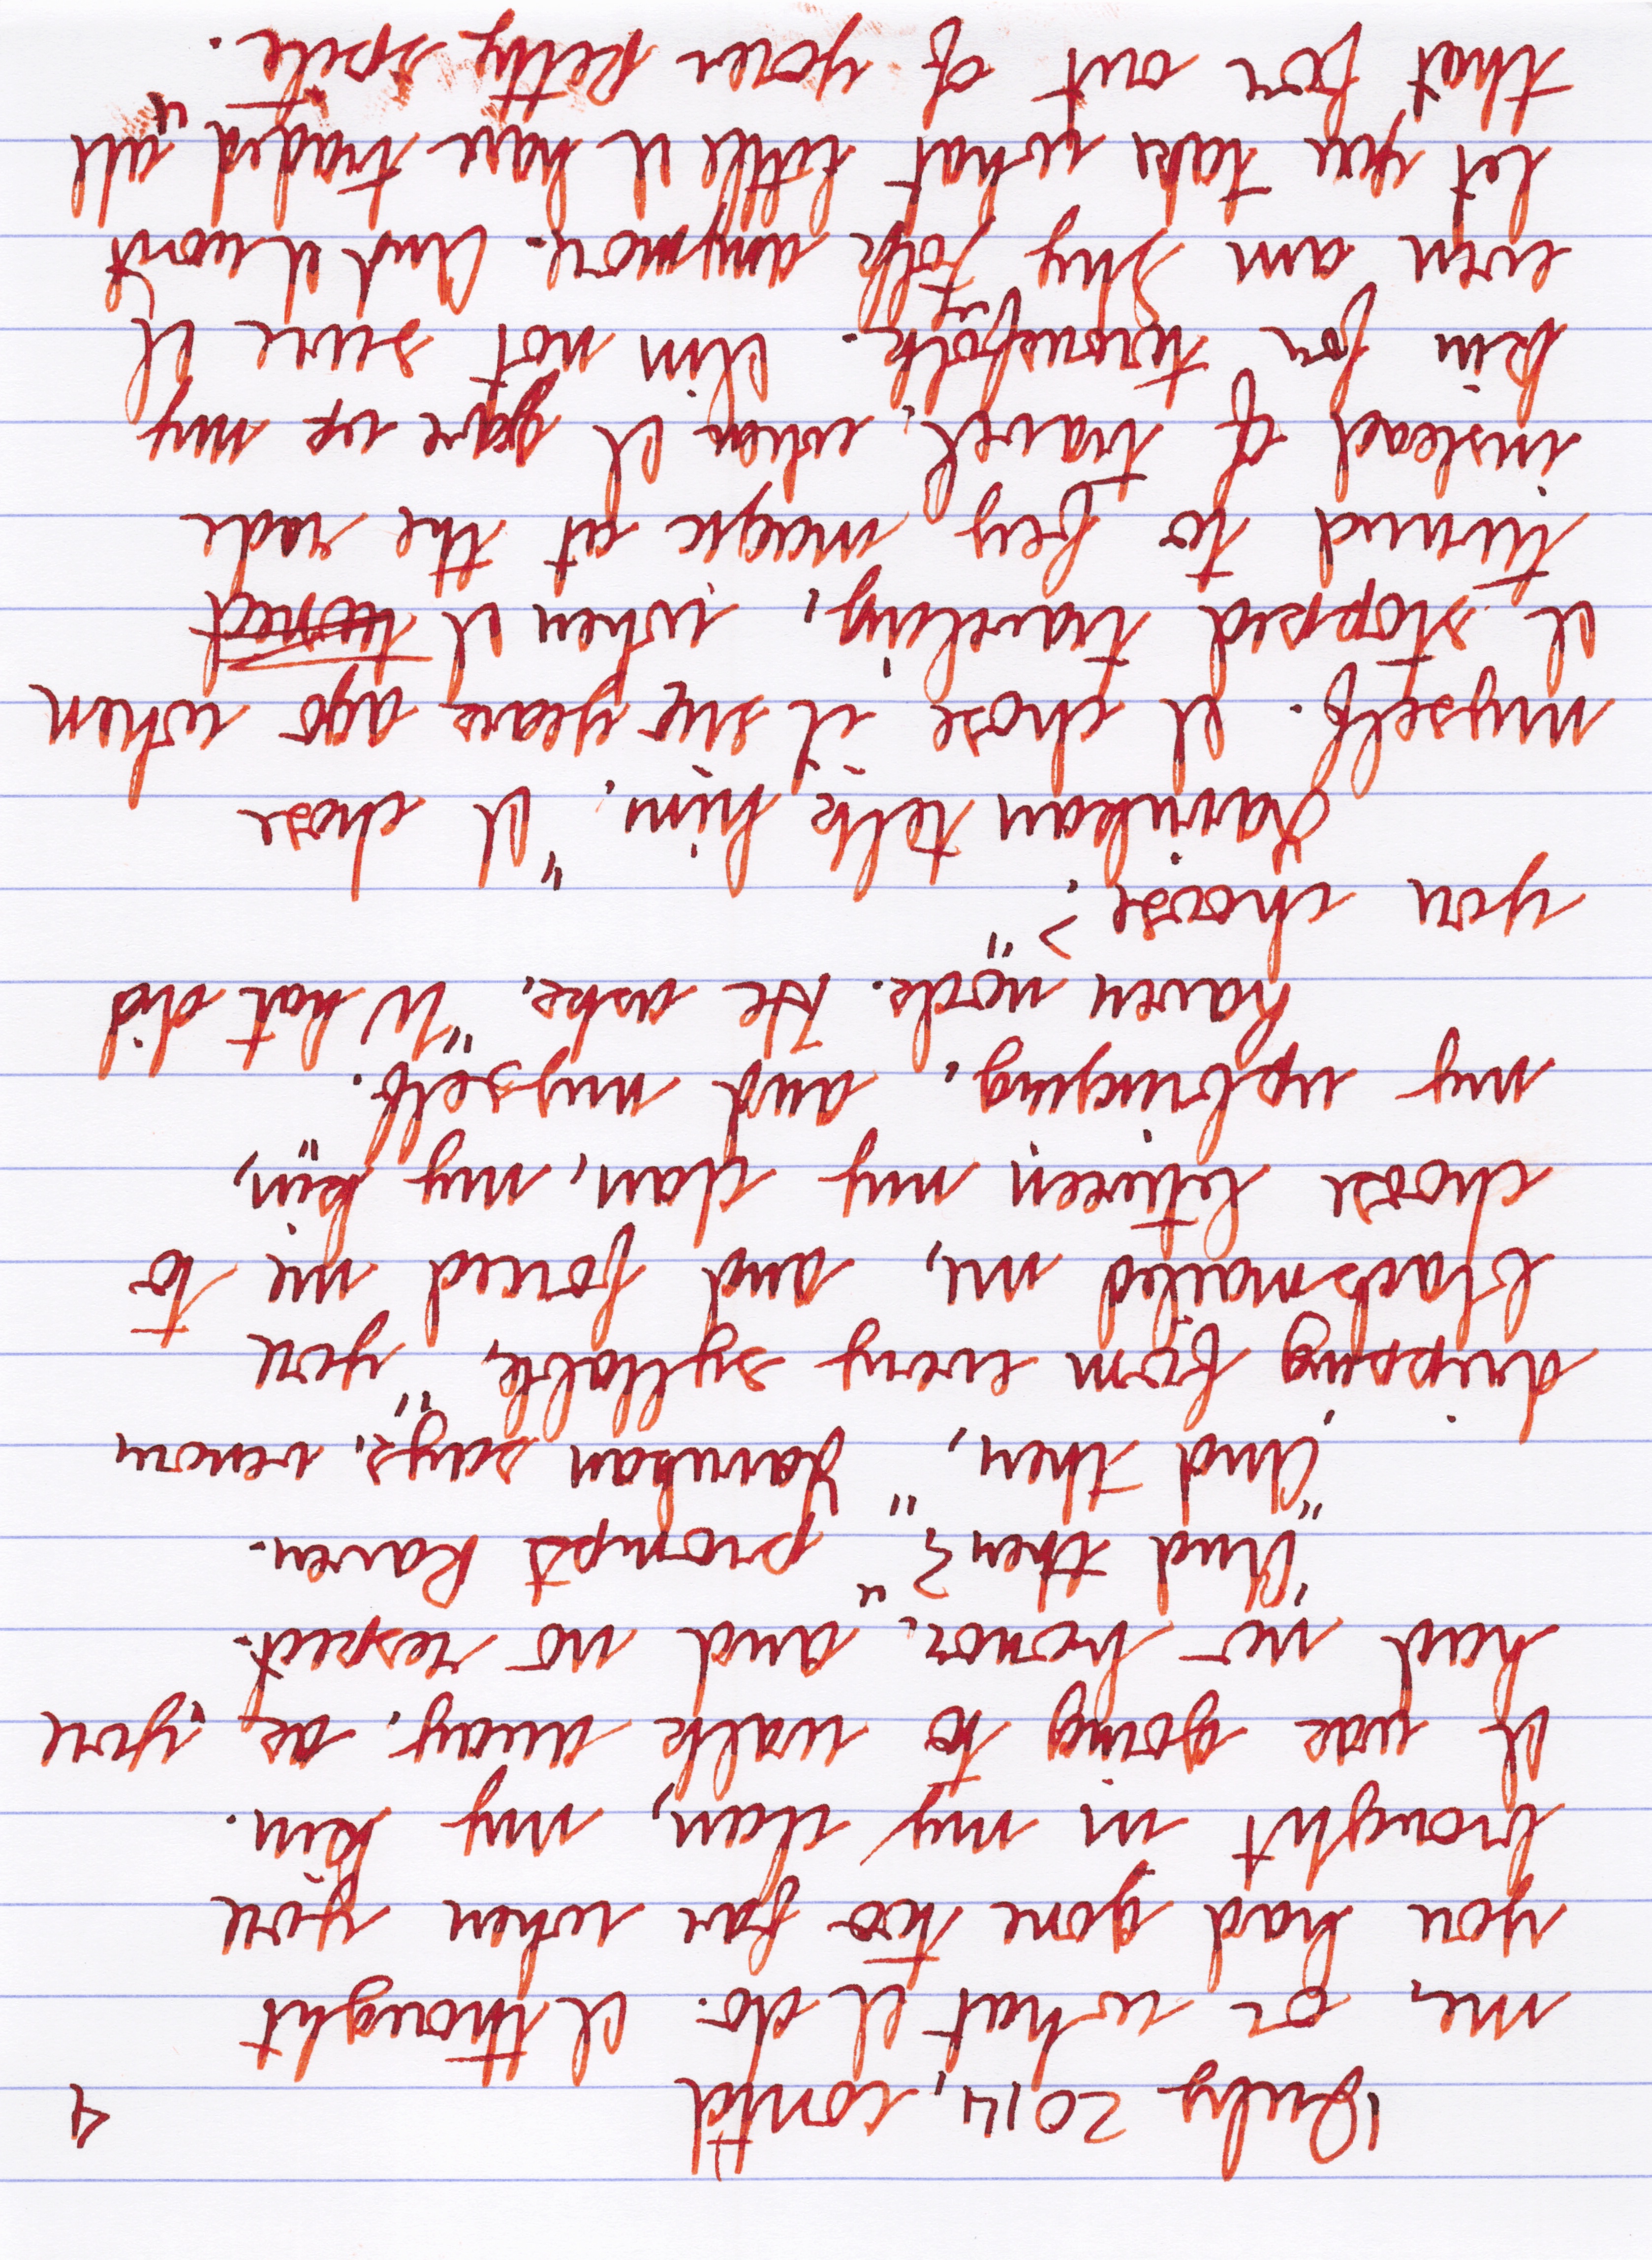 1 July 2014, cont'd 4
me, or what I do. I thought
you had gone too far when you
brought in my clan, my kin.
I was going to walk away, as you
had no honor, and no respect."
"And then?" prompts Raven.
"And then," Jarnkan says, venom
dripping from every syllable, "you
blackmailed me, and forced me to
choose between my clan, my kin,
my upbringing, and myself."
Raven nods. He asks, "What did
you choose?"
Jarnkan tells him, "I chose
myself. I chose it six years ago when
I stopped traveling, when I turned
turned to fey magic at the rade
instead of travel, when I gave up my
kin for townsfolk. I'm not sure I
even am Sky Folk anymore. And I won't
let you take what little I have traded all
that for out of your petty spite."